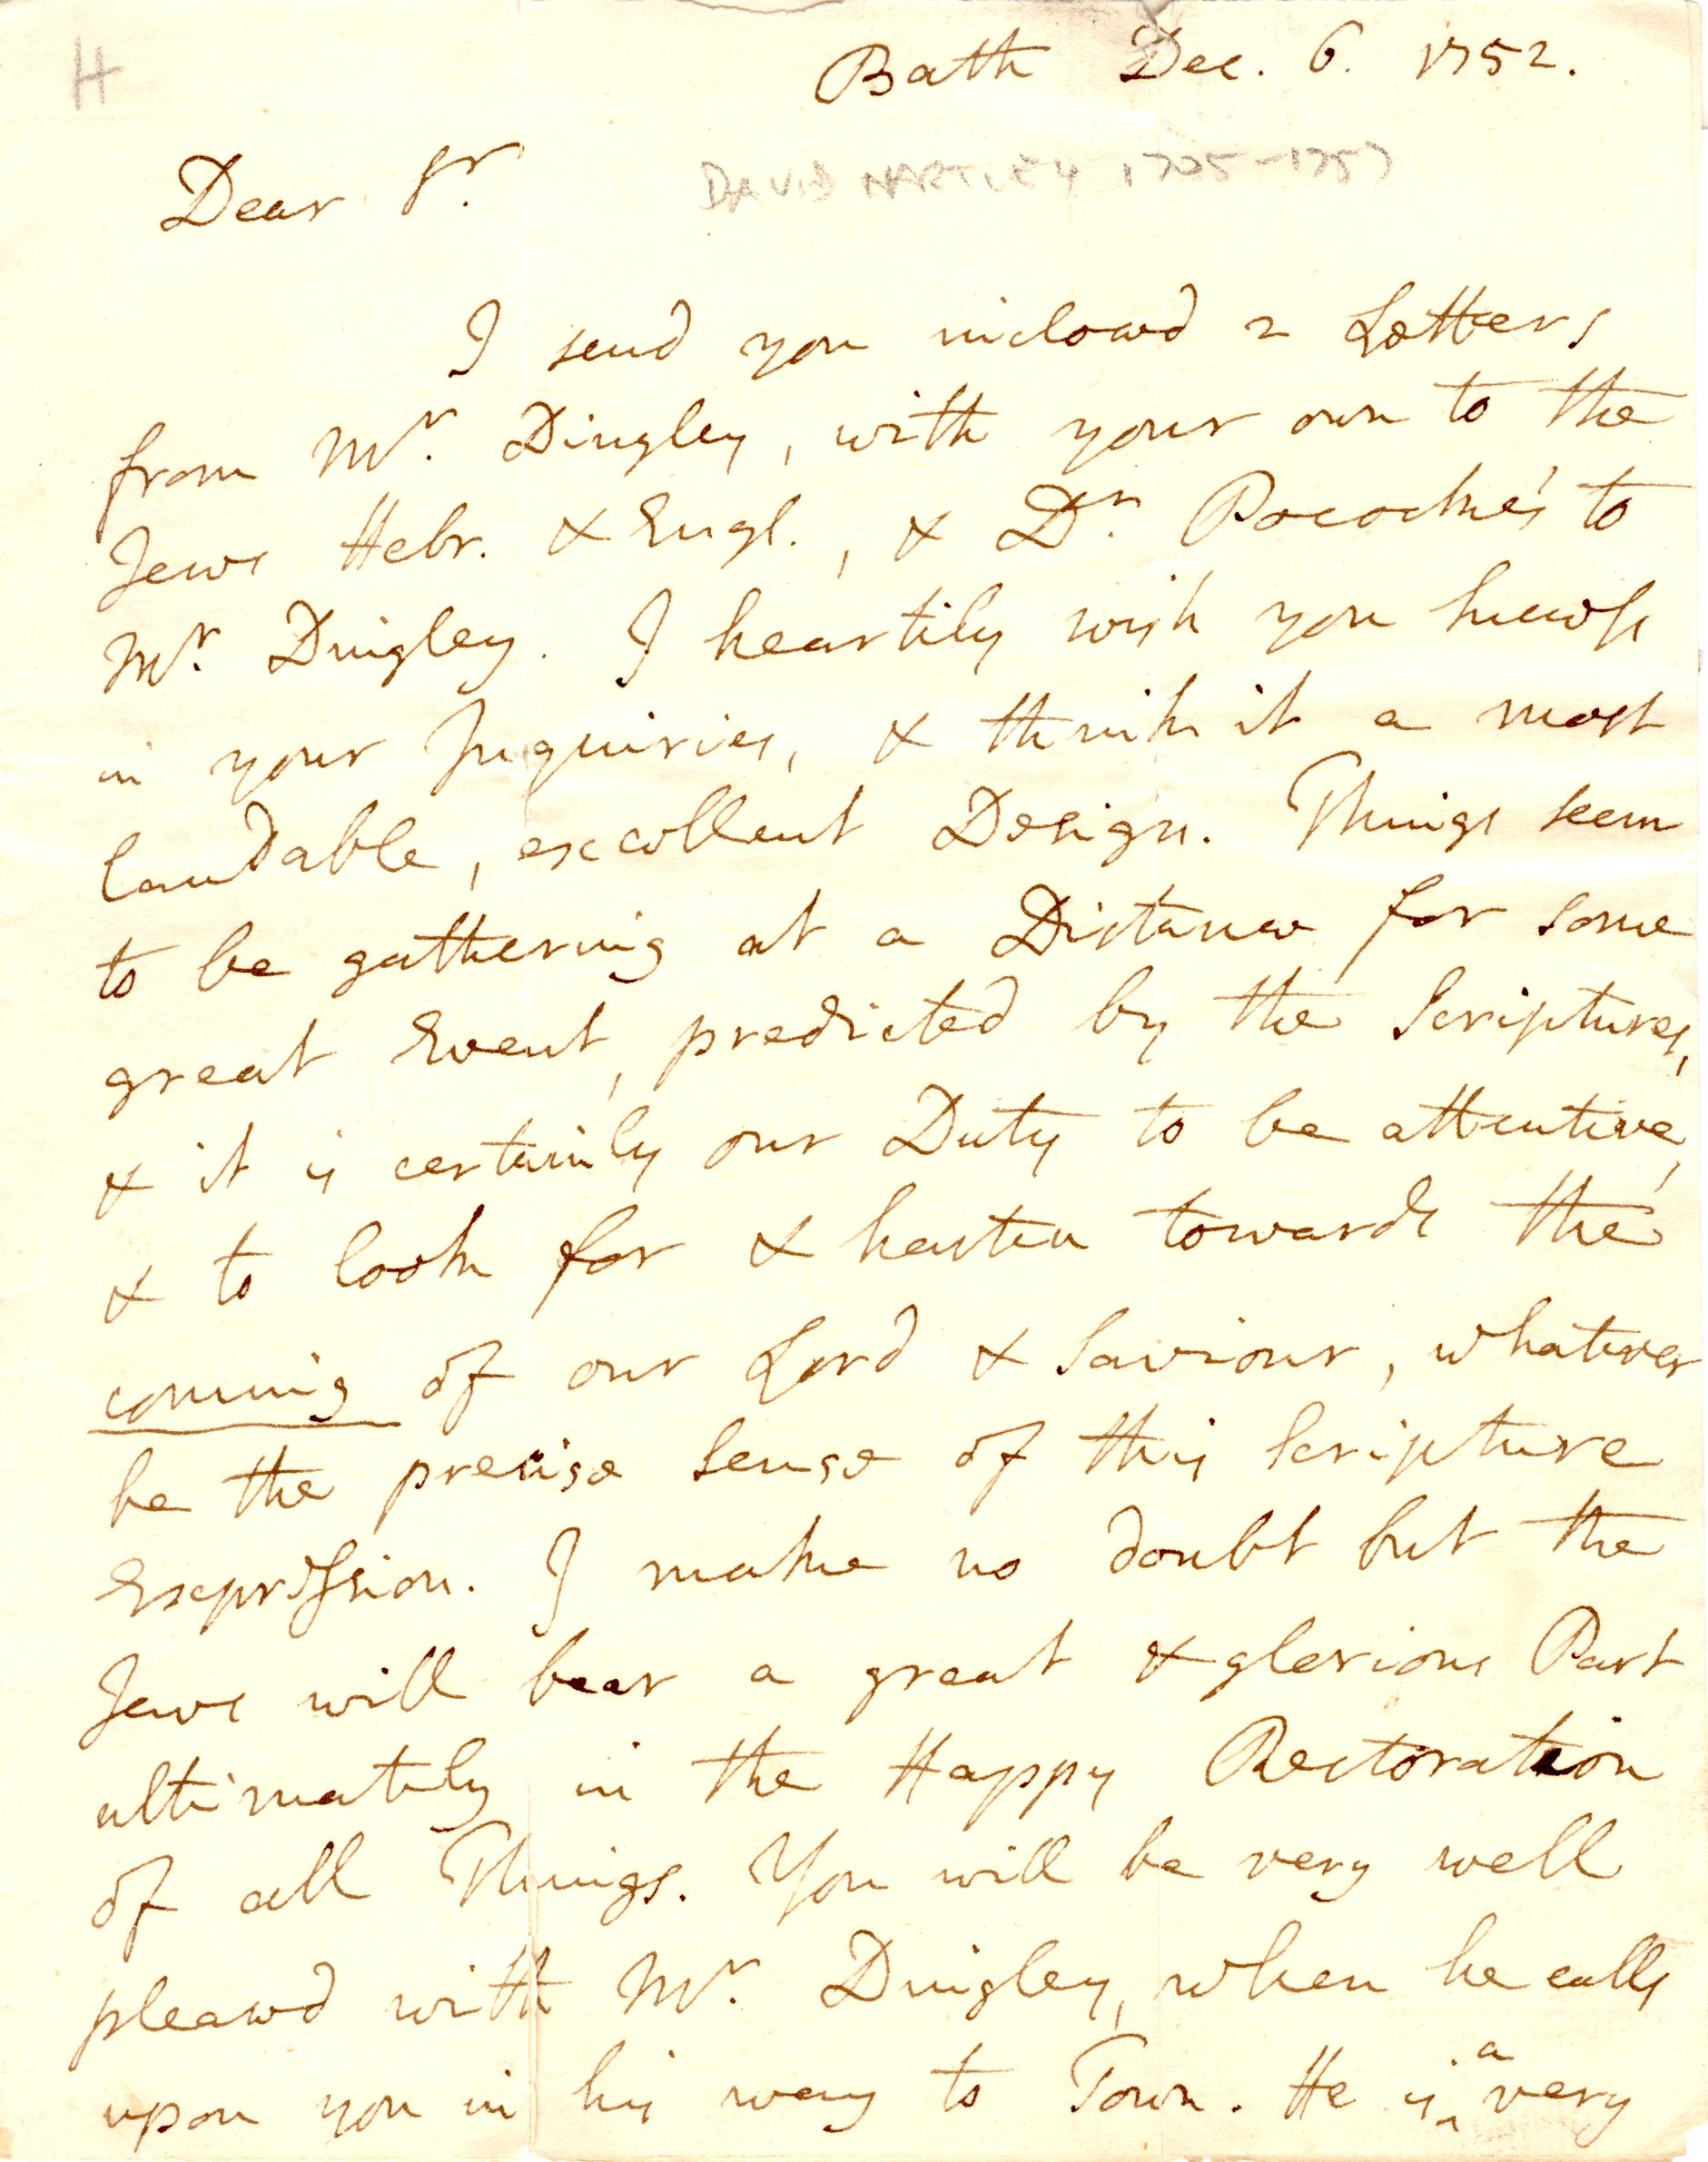 H
Bath Dec. 6. 1752.
Dear Sr.
DAVID HARTLEY 1705-1757
I send you inclosed 2 Letters
from Mr. Dingley, with your own to the
Jews Hebr. & Engl., & Dr. Pococke's to
Mr. Dingley. I heartily wish you success
in your Inquiries, & think it a most
laudable, excellent Design. Things seem
to be gathering at a Distance for some
great Event, predicted by the Scriptures,
& it is certainly our Duty to be attentive,
& to look for & hasten towards the
coming of our Lord & Saviour, whatever
be the precise Sense of this Scripture
Expression. I make no doubt but the
Jews will bear a great & glorious Part
ultimately in the Happy Restoration
of all Things. You will be very well
pleased with Mr. Dingley, when he calls
upon you in his way to Town. He is a very